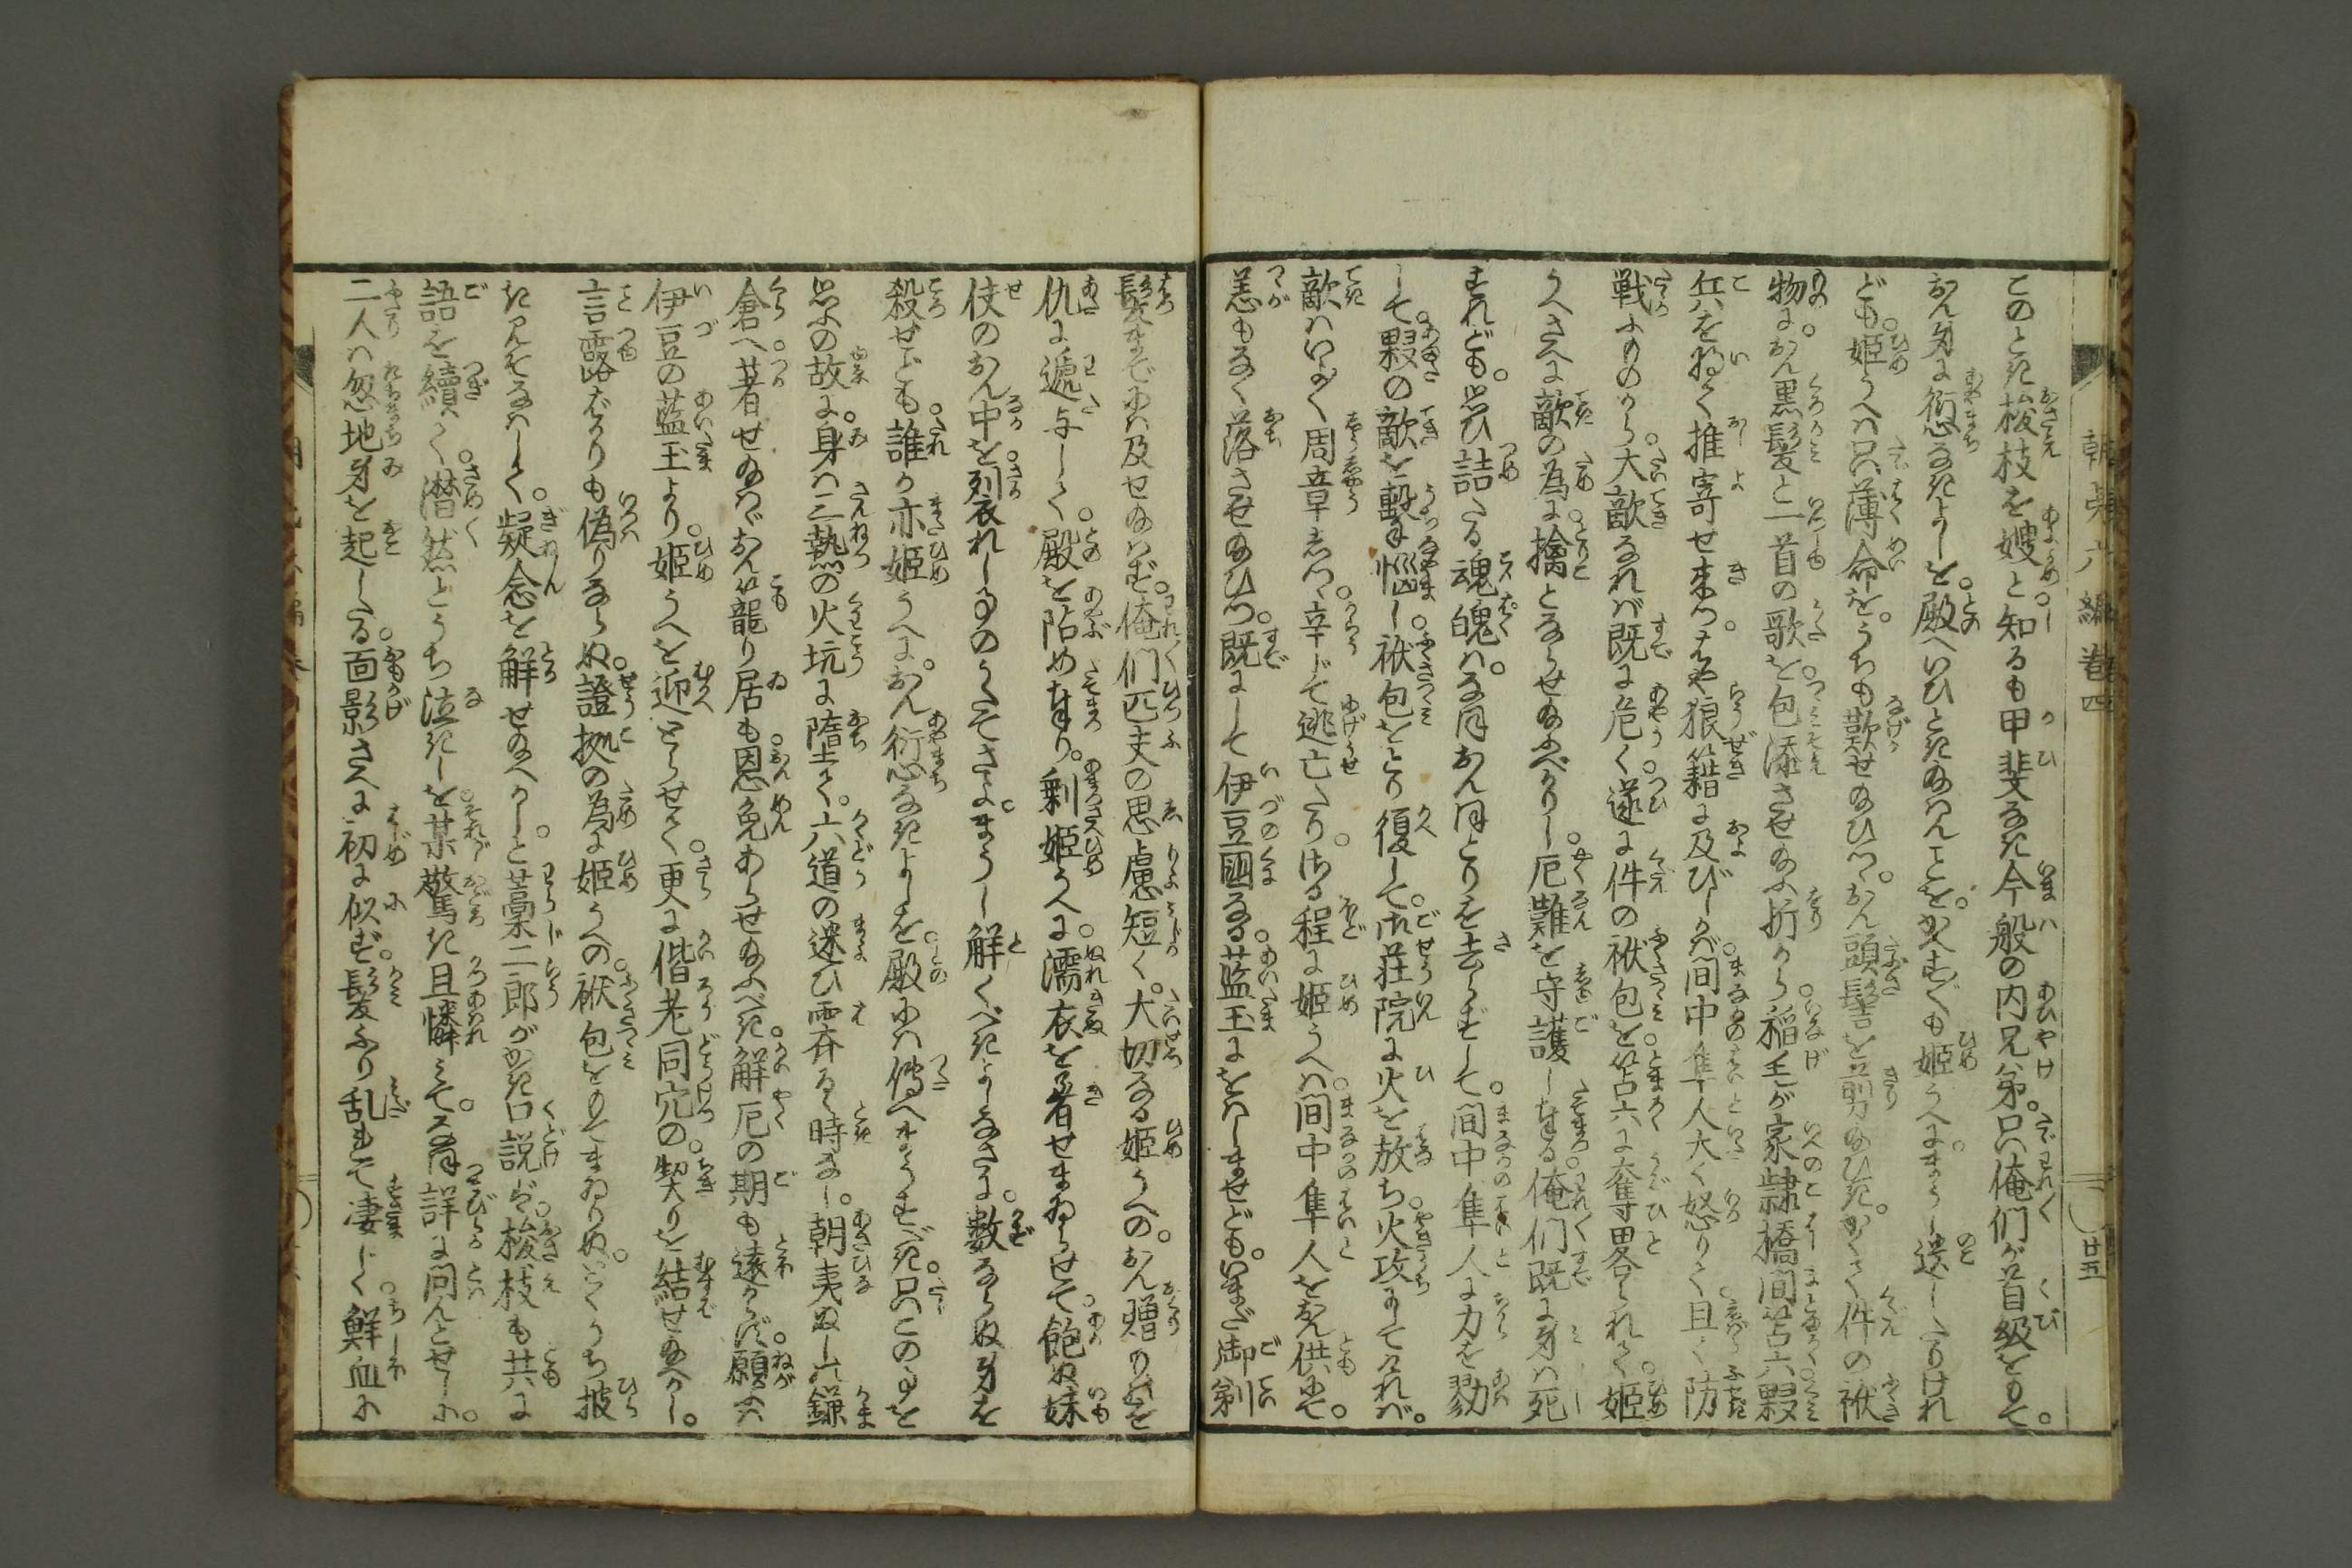 朝夷六編巻四
廿五
このとき梭枝を嫂と知るも甲斐なき今般の内兄弟。只俺們が首級をもて。
おん身に愆なきよしを。殿へいひときぬはんことを。かへす〴〵も姫うへにまうし遺したりけれ
ども。姫うへは只薄命を。うちも歎せ給ひつ。おん頭髻を剪給ひき。かくて件の袱
物に。おん黒髪と一首の歌を。包添させ給ふ折から。稲毛が家隷橋間笘六夥
兵を将て推寄せ来つ。はや狼藉に及びしかば。間中隼人大く怒りて。且く防
戦ふものから。大敵なれば既に危く。遂に件の袱包を。笘六に奪畧られて。姫
うへさへに敵の為に。擒とならせ給ふべかりし。厄難を守護しまゐる。俺們既に身は死
すれども。思ひ詰たる魂魄は。なほおん身とりを去らずして。間中隼人に力を勠
して。夥の敵を撃惱し。袱包をとり復して。御莊院に火を放ち。火攻にしてければ。
敵はいよゝ周章しつ。辛じて逃亡たり。浩る程に姫うへは。間中隼人をおん供にて。
恙もなく落させ給ひつ。既にして伊豆國なる。藍玉にをはしませども。いまだ御剃
髪までには及せ給はず。俺們匹夫の思慮短く。大切なる姫うへの。おん贈りものを
仇に逓与して。殿を陥めまゐり。剰姫うへに。濡衣を着せまゐらせて。飽ぬ妹
伎のおん中を。列衣れし事のうたてさよ。まうし解くべきよしなさに。數ならぬ身を
殺せども。誰か亦姫うへに。おん愆なきよしを。殿には傳へまうすべき。只このことを
思ふの故に。身は三熱の火坑に墮て。六道の迷ひ霽るゝ時なし。朝夷ぬしの鎌
倉へ。着せ給はゞおん籠り居も。恩免あらせ給ふべき。解厄の期も遠からず。願ふは
伊豆の藍玉より。姫うへを迎とらせて。更に偕老同穴の。契りを結せ給へかし。
言露ばかりも偽りならぬ。證拠の為に姫うへの。袱包をもてまゐりぬ。とくうち披
きみそなはして。疑念を解せ給へかし。と藁二郎がかき口説ば。梭枝も共に
語を續て。潜然とうち泣きしを。某驚き且憐みて。なほ詳に問んとせしに。
二人は忽地身を起したる。面影さへに初に似ず。髪ふり乱して凄じく。鮮血に